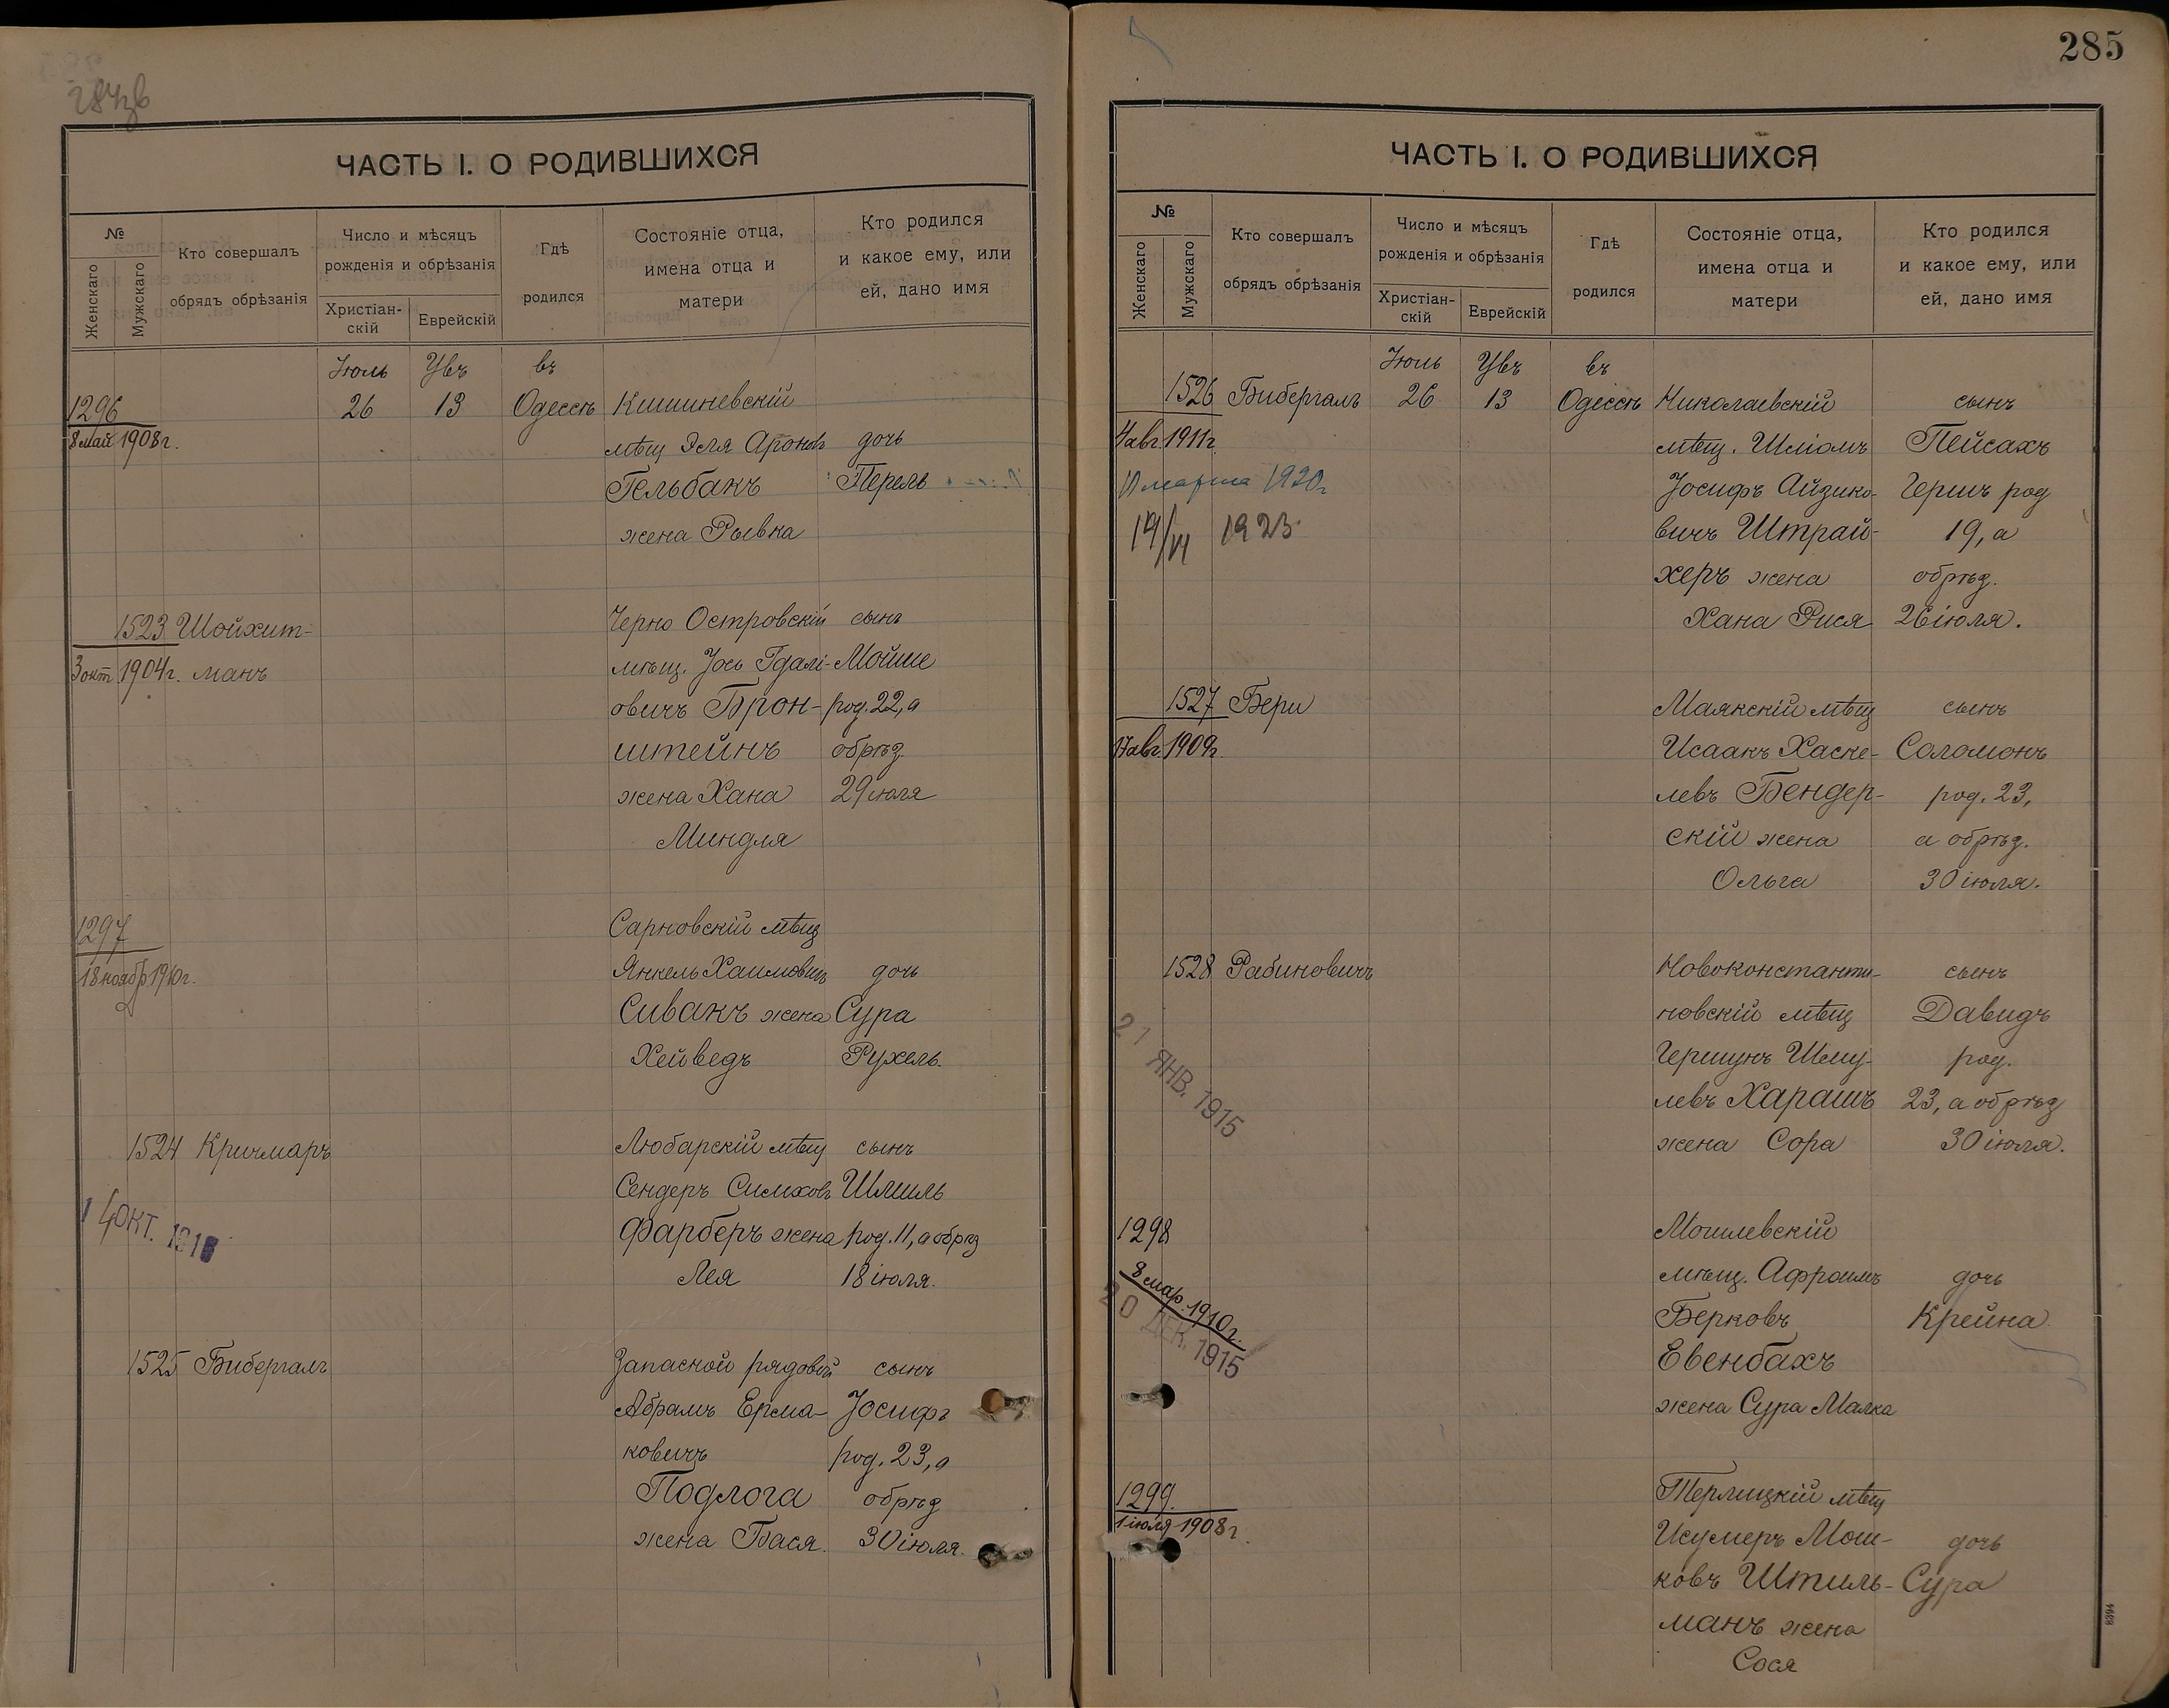 ЧАСТЬ I. О РОДИВШИХСЯ
№
Женскаго
Мужскаго
Кто совершалъ
обрядъ обрѣзанія
Число и мѣсяцъ
рожденія и обрѣзанія
Христіан-
скій
Еврейскій
Гдѣ
родился
Состояніе отца,
имена отца и
матери
Кто родился
и какое ему, или
ей, дано имя
Іюль Увъ въ
1296 26 13 Одессѣ Кишиневскій
8 май 1908 г. мѣщ Эля Ароновъ дочь
Гельбакъ Перель
жена Рывка
1523 Шойхит- Черно Островскій сынъ
3 окт 1904 г. манъ мѣщ. Іось Гдалі- Мойше
овичъ Брон- род. 22, а
штейнъ обрѣз.
жена Хана 29 іюля
Миндля
1297 Сарновскій мѣщ
18 ноябр 1910 г. Янкель Хаимовичъ дочь
Сивакъ жена Сура
Хейведъ Рухель.
1524 Кричмаръ Любарскій мѣщ сынъ
Сендеръ Симховъ Шмиль
14 ОКТ. 191
Фарберъ жена род. 11, а обрѣз
Лея 18 іюля.
1525 Бибергалъ Запасной рядовой сынъ
Абрамъ Ерма- Іосифъ
ковичъ род. 23, а
Подлога обрѣз
жена Бася. 30 іюля.
285
ЧАСТЬ I. О РОДИВШИХСЯ
№
Женскаго
Мужскаго
Кто совершалъ
обрядъ обрѣзанія
Число и мѣсяцъ
рожденія и обрѣзанія
Христіан-
скій
Еврейскій
Гдѣ
родился
Состояніе отца,
имена отца и
матери
Кто родился
и какое ему, или
ей, дано имя
Іюль Увъ въ
1526 Бибергалъ 26 13 Одессѣ Николаевскій сынъ
4 авг. 1911 г. мѣщ. Шліомъ Пейсахъ
марта 1920 г. Іосифъ Айзико- Гершъ род
14/VI 1923 вичъ Штрай- 19, а
херъ жена обрѣз.
Хана Рися 26 іюля.
1527 Бери Маякскій мѣщ сынъ
17 авг. 1909 г. Исаакъ Хаске- Соломонъ
левъ Бендер- род. 23,
скій жена а обрѣз.
Ольга 30 іюля.
1528 Рабиновичъ Новоконстанти- сынъ
новскій мѣщ Давидъ
21 ЯНВ. 1915
Гершунъ Шму- род.
левъ Харашъ 23, а обрѣз
жена Сора 30 іюля.
1298 Могилевскій
8 мар. 1910 г. мѣщ. Афроимъ дочь
20 ДЕК. 1915
Берковъ Крейна
Евенбахъ
жена Сура Малка
1299. Терлицкій мѣщ
1 іюля 1908 г. Исумеръ Мош- дочь
ковъ Штиль- Сура
манъ жена
Сося